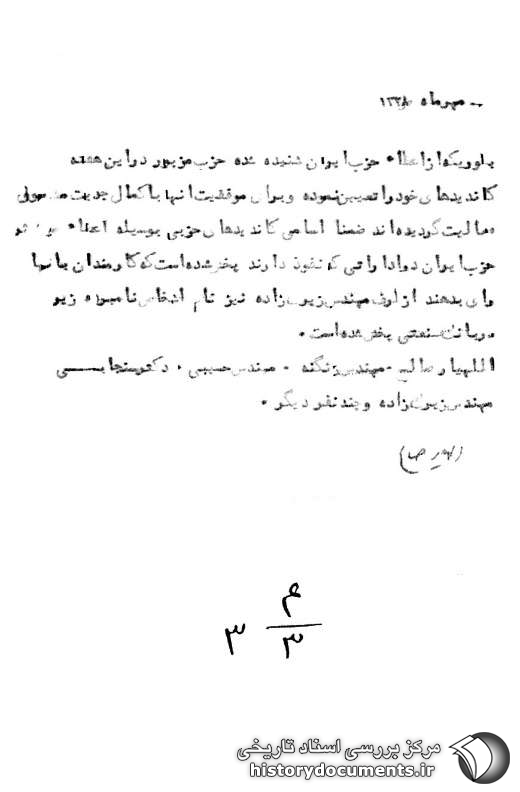 -- مهرماه ۱۳۲۸
بطوریکه از اعضاء حزب ایران شنیده شده حزب مزبور در این هفته
کاندیدهای خود را تعیین نموده و برای موفقیت آنها با کمال جدیت مشغول
فعالیت گردیده اند ضمنا اسامی کاندیدهای حزبی بوسیله اعضاء
حزب ایران در اداراتی که نفوذ دارند پخش شده است که کارمندان بآنها
رای بدهند از طرف مهندس زیرک زاده نیز نام اشخاص نامبرده زیر
در بانک صنعتی پخش شده است .
اللهیار صالح - مهندس زنگنه - مهندس حسیبی . دکتر سنجابی
مهندس زیرک زاده و چند نفر دیگر .
۳ ۴
۳
مرکز بررسی اسناد تاریخی
historydocuments.ir